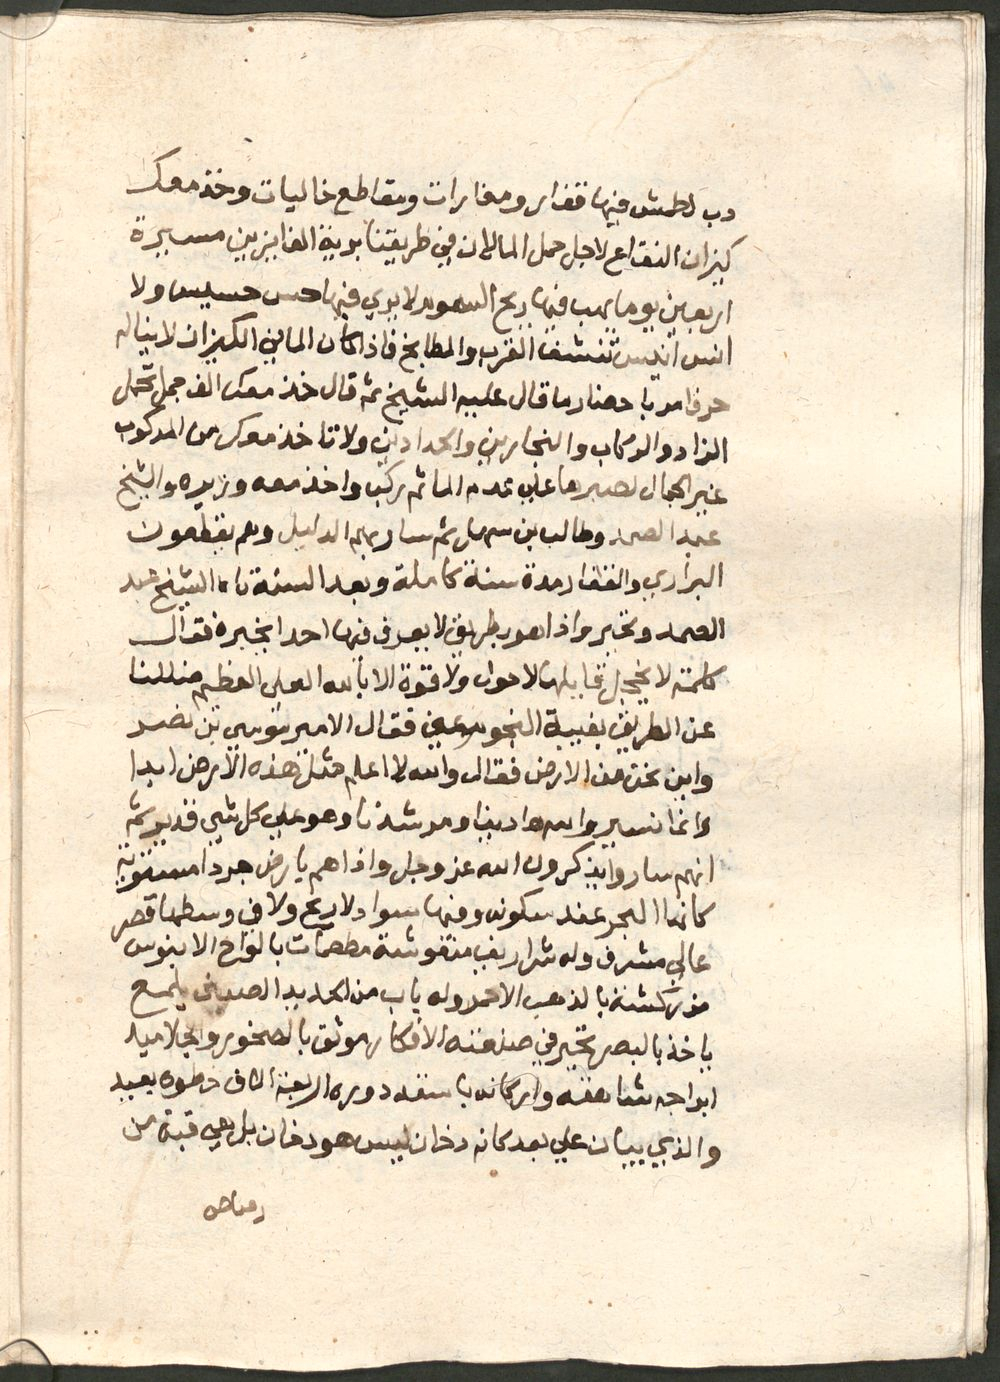 درب لطمش فيها قفار ومغارات ومقاطع خاليات وخذ معك
كيزان الفقاع لاجل حمل الما لان في طريقنا برية الفايزين مسيرة
اربعين يوما يهب فيها ريح السموم لا يري فيها حس حسيس ولا
انس انيس تنشف القرب والمطابخ فاذا كان الما في الكيزان لا يناله
حر فامر باحضار ما قال عليه الشيخ ثم قال خذ معك الف جمل تحمل
الزاد والركاب والنجارين والحدادين ولا تاخذ معك من المركوب
غير الجمال لصبرها علي عدم الما ثم ركب واخذ معه وزيره والشيخ
عبد الصمد وطالب بن سهل ثم سار بهم الدليل وهم يقطعون
البراري والقفار مدة سنة كاملة وبعد السنة تاه الشيخ عبد
الصمد وتحير واذا هو بطريق لا يعرف فيها احدا يخبره فقال
كلمة لا يخجل قايلها لا حول ولا قوة الا بالله العلي العظيم ضللنا
عن الطريق بغيبة النجوم عني فقال الامير موسي بن نصير
واين نحن من الارض فقال والله لا اعلم مثل هذه الارض ابدا
وانما نسير والله هادينا ومرشدنا وهو علي كل شي قدير ثم
انهم ساروا يذكرون الله عز وجل واذا هم بارض جردا مستوية
كانها البحر عند سكونه وفيها سواد لا ريح ولا في وسطها قصر
عالي مشرف وله شراريف منقوشة مطعمات بالواح الابنوس
مزركشة بالذهب الاحمر وله باب من الحديد الصيني يلمع
ياخذ بالبصر تحير في صنعته الافكار موثق بالصخور والجلاميد
ابراجه شاهقه واركانه باسقه دوره اربعة الاف خطوه بعيد
والذي يبان علي بعد كانه دخان ليس هو دخان بل هي قبة من
رصاص